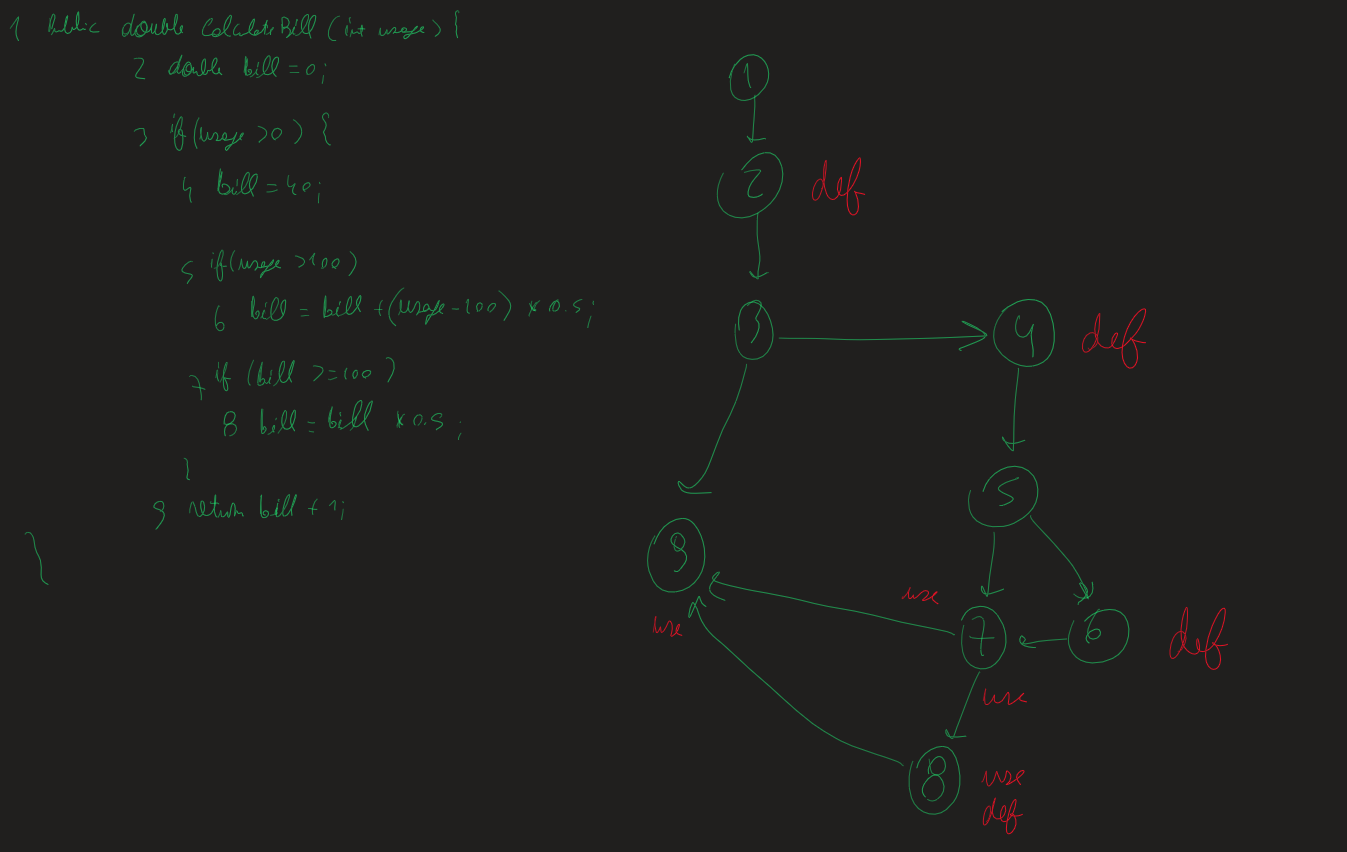 1 Public double CalculateBill (int usage) {
2 double bill = 0;
3 if (usage > 0) {
4 bill = 40;
5 if (usage > 100)
6 bill = bill + (usage - 100) * 0.5;
7 if (bill >= 100)
8 bill = bill * 0.5;
}
9 return bill + 1;
}
1
2 def
3
4 def
5
9
use
use
7
6 def
use
8 use
def